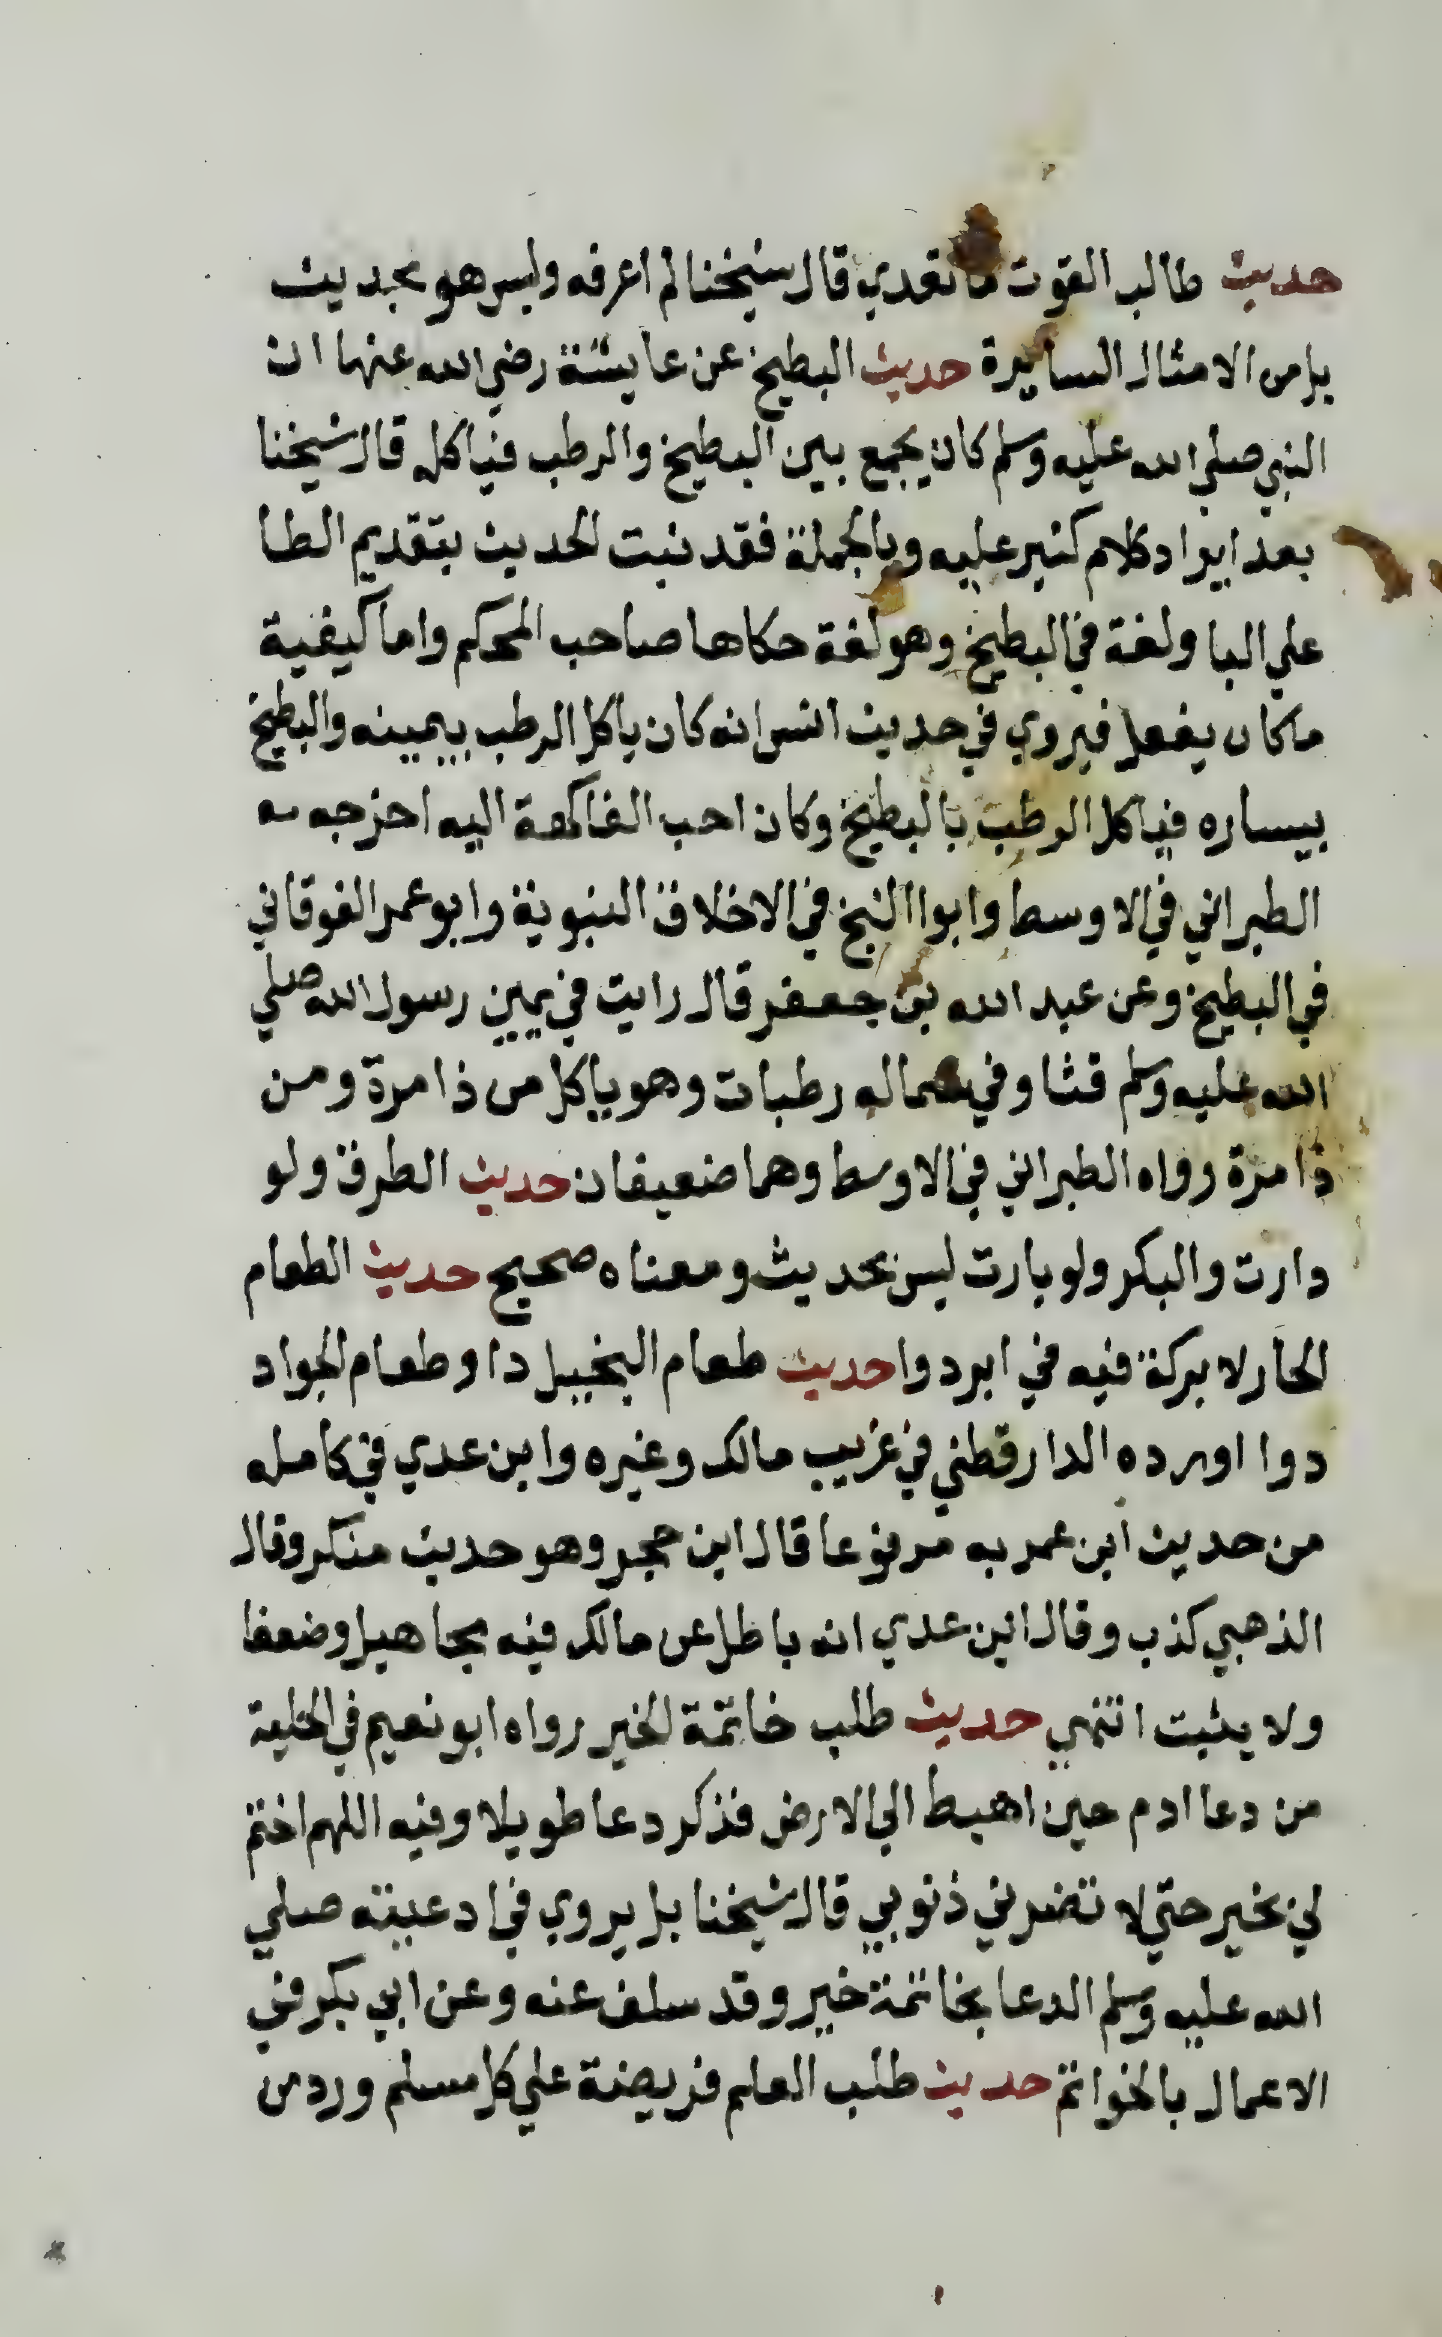 حديث طالب القوت ما تعدي قال شيخنا لم اعرفه وليس هو بحديث
بل من الامثال السايرة حديث البطيخ عن عايشة رضي الله عنها ان
النبي صلي الله عليه وسلم كان يجمع بين البطيخ والرطب فياكله قال شيخنا
بعد ايراد كلام كثير عليه وبالجملة فقد ثبت الحديث بتقديم الطا
علي البا ولغة في البطيخ وهو لغة حكاها صاحب المحكم واما كيفية
ما كان يفعل فيروي في حديث انس انه كان ياكل الرطب بيمينه والبطيخ
بيساره فياكل الرطب بالبطيخ وكان احب الفاكهة اليه اخرجه
الطبراني في الاوسط وابوا الشيخ في الاخلاق النبوية وابو عمر الفوقاني
في البطيخ وعن عبد الله بن جعفر قال رايت في يمين رسول الله صلي
الله عليه وسلم قثا وفي شماله رطبات وهو ياكل من ذا مرة ومن
ذا مرة رواه الطبراني في الاوسط وهما ضعيفان حديث الطرق ولو
دارت والبكر ولو بارت ليس بحديث ومعناه صحيح حديث الطعام
الحار لا بركة فيه في ابردوا حديث طعام البخيل دا وطعام الجواد
دوا اورده الدارقطني في غريب مالك وغيره وابن عدي في كامله
من حديث ابن عمر به مرفوعا قال ابن حجر وهو حديث منكر وقال
الذهبي كذب وقال ابن عدي انه باطل عن مالك فيه مجاهيل وضعفا
ولا يثبت انتهي حديث طلب خاتمة الخير رواه ابو نعيم في الحلية
من دعا ادم حين اهبط الي الارض فذكر دعا طويلا وفيه اللهم اختم
لي بخير حتي لا تضرني ذنوبي قال شيخنا بل يروي في ادعيته صلي
الله عليه وسلم الدعا بخاتمة خير وقد سلف عنه وعن ابي بكر في
الاعمال بالخواتم حديث طلب العلم فريضة علي كل مسلم ورد من